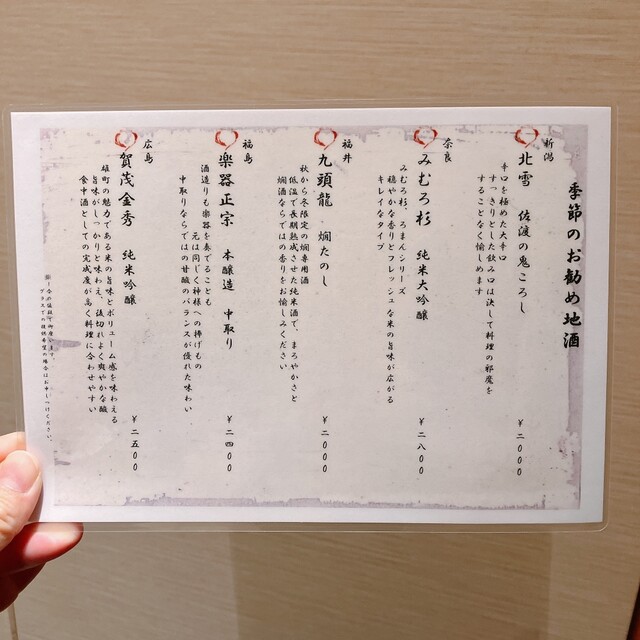 季節のお勧め地酒
新潟
北雪 佐渡の鬼ころし
辛口を極めた大辛口
すっきりとした飲み口は決して料理の邪魔を
することなく愉しめます
￥二〇〇〇
奈良
みむろ杉 純米大吟醸
みむろ杉、ろまんシリーズ
穏やかな香りとフレッシュな米の旨味が広がる
キレイなタイプ
￥二八〇〇
福井
九頭龍 燗たのし
秋から冬限定の燗専用酒
低温で長期熟成させた純米酒で、まろやかさと
燗酒ならではの香りをお愉しみください
￥二〇〇〇
福島
楽器正宗 本醸造 中取り
酒造りも楽器を奏でることも
元は同じく神様への捧げもの
中取りならではの甘酸のバランスが優れた味わい
￥二四〇〇
広島
賀茂金秀 純米吟醸
雄町の魅力である米の旨味とボリューム感を味わえる
旨味がしっかりと味わえ、後切れよく爽やかな酸
食中酒としての完成度が高く料理に合わせやすい
￥二五〇〇
※一合の値段で御座います。
グラスでの提供希望の場合はお申しつけください。